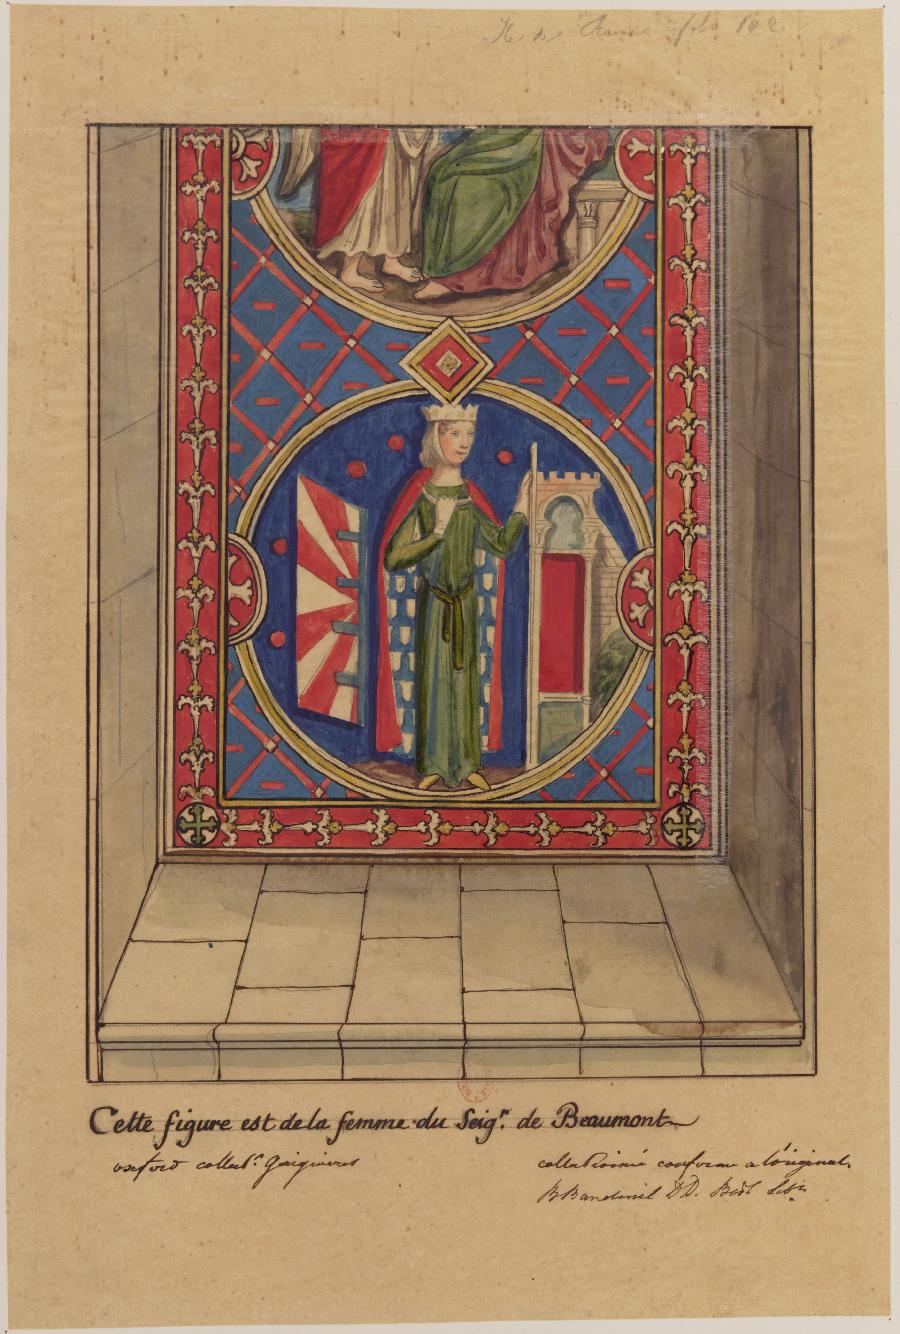 fol. 102.
Cette figure est de la femme du Seigr. de Beaumont
oxford collecn. Gaignieres
collationné conforme a l'original.
B Bandinel D.D. Bodl Libn.